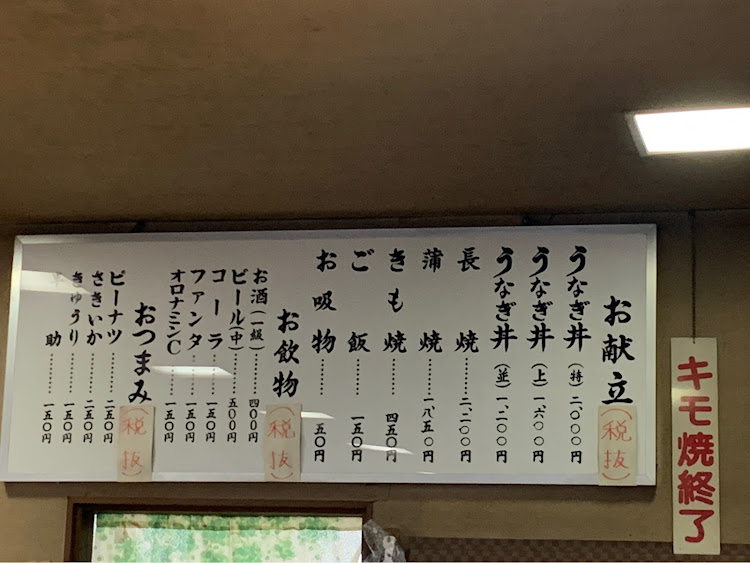 お献立
(税抜)
うなぎ丼(特)二、〇〇〇円
うなぎ丼(上)一、六〇〇円
うなぎ丼(並)一、二〇〇円
長焼………二、二〇〇円
蒲焼………一、八五〇円
きも焼………四五〇円
ご飯………一五〇円
お吸物………五〇円
お飲物
(税抜)
お酒(一級)………四〇〇円
ビール(中)………五〇〇円
コーラ………一五〇円
ファンタ………一五〇円
オロナミンC………一五〇円
おつまみ
(税抜)
ピーナツ………二五〇円
さきいか………二五〇円
きゅうり………一五〇円
助………一五〇円
キモ焼終了